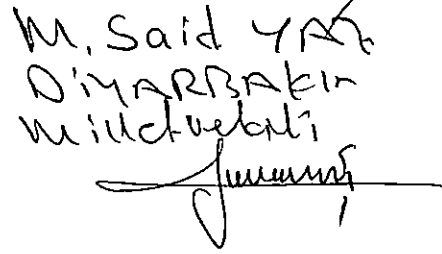 M. Said YAZ
DİYARBAKIR
Milletvekili